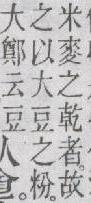 米麥之乾者。故
之以大豆之粉。
大鄭云豆